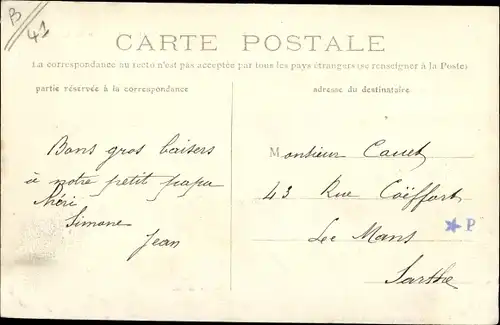 B
41
CARTE POSTALE
La correspondance au recto n'est pas acceptée par tous les pays étrangers (se renseigner à la Poste)
partie réservée à la correspondance
adresse du destinataire.
Bons gros baisers
à notre petit papa
Simone
Jean
Monsieur Cauet
43 Rue Coëffort
Le Mans
Sarthe
P